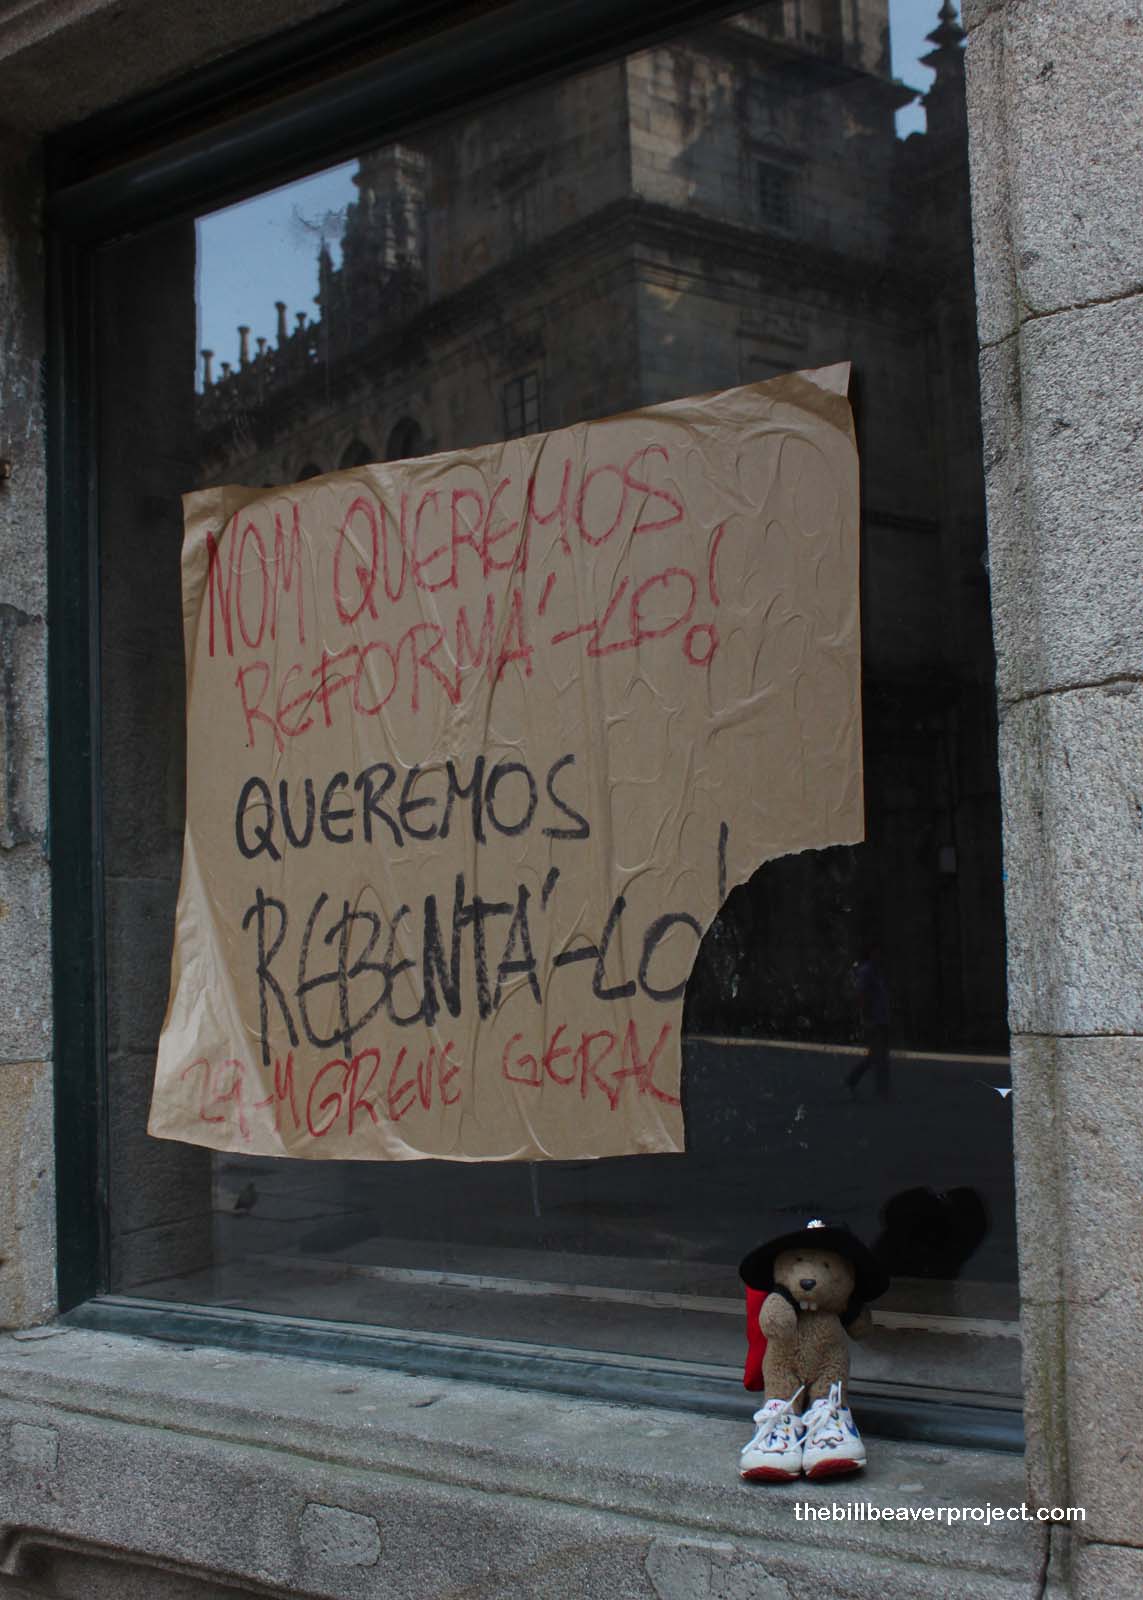 NOM QUEREMOS
REFORMÁ-LO!
QUEREMOS
REBENTÁ-LO!
29-M GREVE GERAL
thebillbeaverproject.com